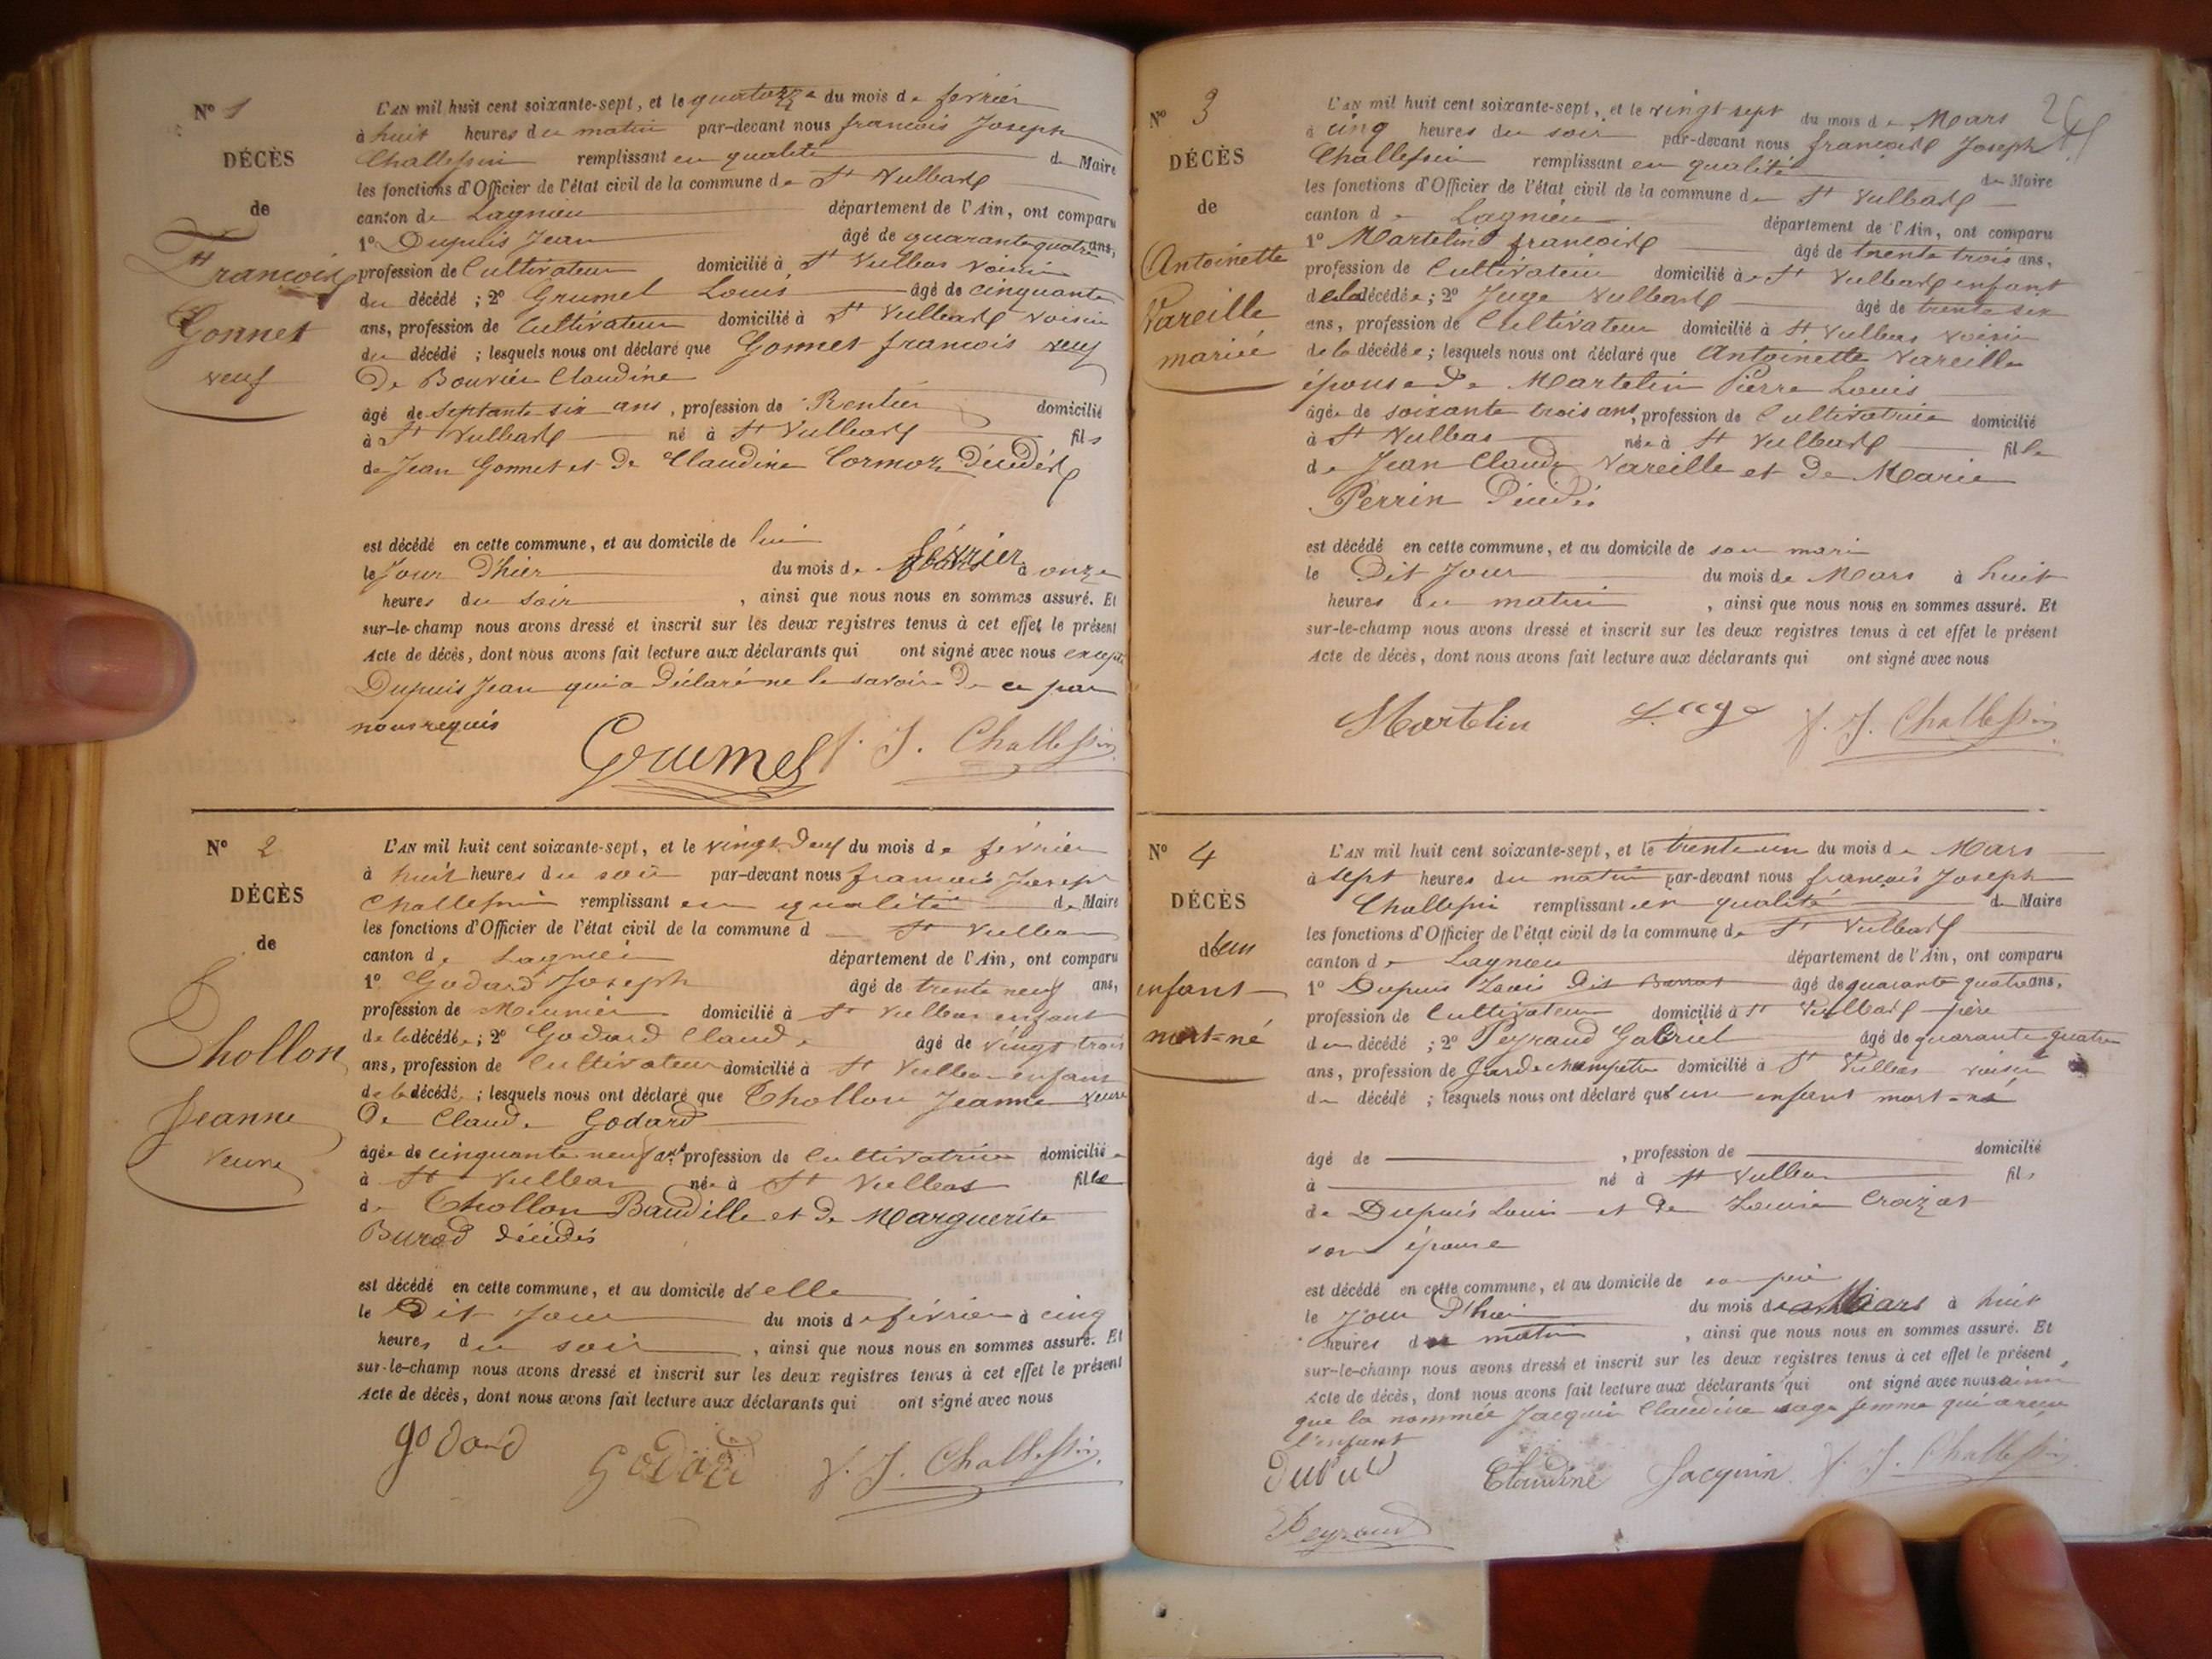 N° 1
DÉCÈS
de
François
Gonnet
veuf
L'AN mil huit cent soixante-sept, et le quatorze du mois de février
à huit heures du matin par-devant nous francois Joseph
Challessin remplissant en qualité de Maire
les fonctions d'Officier de l'état civil de la commune de St Vulbas
canton de Lagnieu département de l'Ain, ont comparu
1° Dupuis Jean âgé de quarante quatre ans,
profession de Cultivateur domicilié à St Vulbas voisin
du décédé ; 2° Grumel Louis âgé de cinquante
ans, profession de Cultivateur domicilié à St Vulbas voisin
du décédé ; lesquels nous ont déclaré que Gonnet francois veuf
De Bouvier Claudine
âgé de septante six ans, profession de Rentier domicilié
à St Vulbas né à St Vulbas fils
de Jean Gonnet et De Claudine Cormoz Décédés
est décédé en cette commune, et au domicile de lui
le Jour D'hier du mois de février à onze
heures du soir , ainsi que nous nous en sommes assuré. Et
sur-le-champ nous avons dressé et inscrit sur les deux registres tenus à cet effet le présent
Acte de décès, dont nous avons fait lecture aux déclarants qui ont signé avec nous excepté
Dupuis Jean qui a Déclaré ne le savoir De ce par
nous requis
Grumel f. J. Challessin
N° 2
DÉCÈS
de
Chollon
Jeanne
veuve
L'AN mil huit cent soixante-sept, et le vingt Deux du mois de février
à huit heures du soir par-devant nous francois Joseph
Challessin remplissant en qualité de Maire
les fonctions d'Officier de l'état civil de la commune d St Vulbas
canton de Lagnieu département de l'Ain, ont comparu
1° Godard Joseph âgé de trente neuf ans,
profession de Meunier domicilié à St Vulbas enfant
de la décédée ; 2° Godard Claude âgé de vingt trois
ans, profession de Cultivateur domicilié à St Vulbas enfant
de la décédée ; lesquels nous ont déclaré que Chollon Jeanne veuve
De Claude Godard
âgée de cinquante neuf ans profession de Cultivatrice domiciliée
à St Vulbas née à St Vulbas fille
de Chollon Baudille et de Marguerite
Burod décédés
est décédé en cette commune, et au domicile d'elle
le Dit Jour du mois de février à cinq
heures du soir , ainsi que nous nous en sommes assuré. Et
sur-le-champ nous avons dressé et inscrit sur les deux registres tenus à cet effet le présent
Acte de décès, dont nous avons fait lecture aux déclarants qui ont signé avec nous
godard Godard f. J. Challessin
N° 3
DÉCÈS
de
Antoinette
Vareille
mariée
L'AN mil huit cent soixante-sept, et le vingt sept du mois de Mars
à cinq heures du soir par-devant nous francois Joseph
Challessin remplissant en qualité de Maire
les fonctions d'Officier de l'état civil de la commune de St Vulbas
canton de Lagnieu département de l'Ain, ont comparu
1° Martelin francois âgé de trente trois ans,
profession de Cultivateur domicilié à St Vulbas enfant
de la décédée ; 2° Juge Vulbas âgé de trente six
ans, profession de Cultivateur domicilié à St Vulbas voisin
de la décédée ; lesquels nous ont déclaré que Antoinette Vareille
épouse De Martelin Pierre Louis
âgée de soixante trois ans, profession de Cultivatrice domicilié
à St Vulbas née à St Vulbas fille
de Jean Claude Vareille et De Marie
Perrin Décédés
est décédé en cette commune, et au domicile de son mari
le Dit Jour du mois de Mars à huit
heures du matin , ainsi que nous nous en sommes assuré. Et
sur-le-champ nous avons dressé et inscrit sur les deux registres tenus à cet effet le présent
Acte de décès, dont nous avons fait lecture aux déclarants qui ont signé avec nous
Martelin Juge f. J. Challessin
N° 4
DÉCÈS
d'un
enfant
mort-né
L'AN mil huit cent soixante-sept, et le trente un du mois de Mars
à sept heures du matin par-devant nous francois Joseph
Challessin remplissant en qualité de Maire
les fonctions d'Officier de l'état civil de la commune de St Vulbas
canton de Lagnieu département de l'Ain, ont comparu
1° Dupuis Louis Dit Barrat âgé de quarante quatre ans,
profession de Cultivateur domicilié à St Vulbas père
du décédé ; 2° Peyraud Gabriel âgé de quarante quatre
ans, profession de Garde champetre domicilié à St Vulbas voisin
du décédé ; lesquels nous ont déclaré qu'un enfant mort-né
âgé de , profession de domicilié
à né à St Vulbas fils
de Dupuis Louis et de Louise Crozat
son épouse
est décédé en cette commune, et au domicile de son père
le Jour D'hier du mois de Mars à huit
heures du matin , ainsi que nous nous en sommes assuré. Et
sur-le-champ nous avons dressé et inscrit sur les deux registres tenus à cet effet le présent
Acte de décès, dont nous avons fait lecture aux déclarants qui ont signé avec nous ainsi
que la nommée Jacquin Claudine sage femme qui a reçu
l'enfant
Dupuis Claudine Jacquin f. J. Challessin
Peyraud